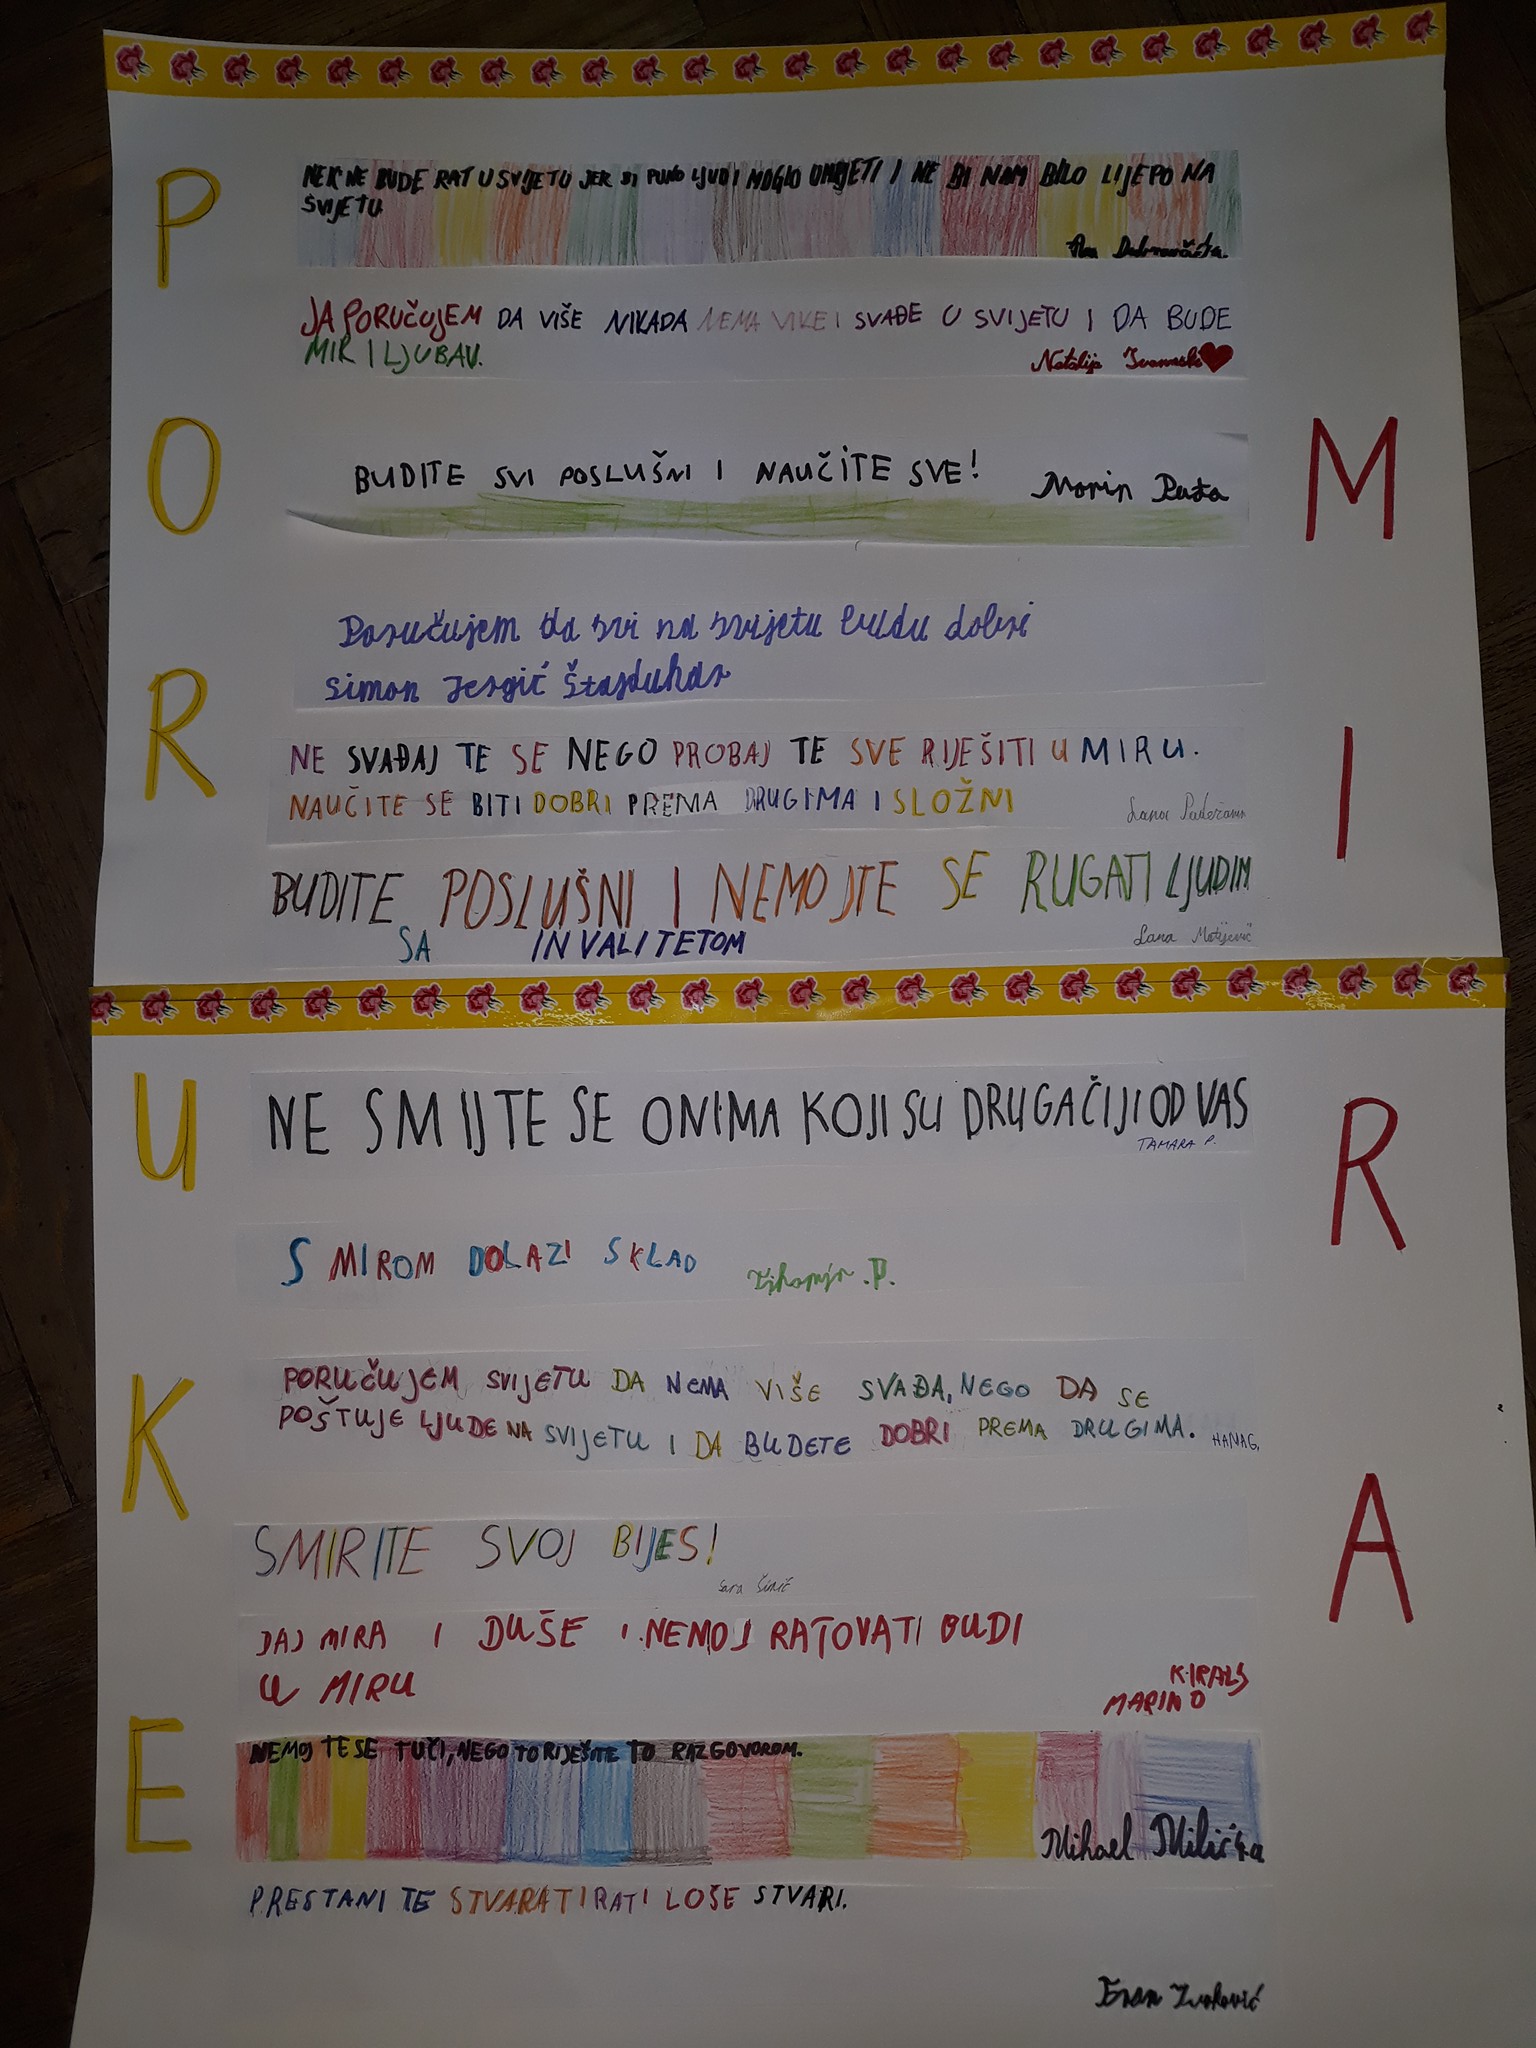 PORUKE
MIRA
NEK NE BUDE RAT U SVIJETU JER BI PUNO LJUDI MOGLO UMRJETI I NE BI NAM BILO LIJEPO NA
SVIJETU
JA PORUČUJEM DA VIŠE NIKADA NEMA VIKE I SVAĐE U SVIJETU I DA BUDE
MIR I LJUBAV.
Natalija
BUDITE SVI POSLUŠNI I NAUČITE SVE!
Marin
Poručujem da svi na svijetu budu dobri
Simon Jergić Štajduhar
NE SVAĐAJ TE SE NEGO PROBAJ TE SVE RIJEŠITI U MIRU.
NAUČITE SE BITI DOBRI PREMA DRUGIMA I SLOŽNI
Lana
BUDITE POSLUŠNI I NEMOJTE SE RUGATI LJUDIM
SA INVALITETOM
Lana Matijević
NE SMIJTE SE ONIMA KOJI SU DRUGAČIJI OD VAS
TAMARA P.
S MIROM DOLAZI SKLAD
P.
PORUČUJEM SVIJETU DA NEMA VIŠE SVAĐA, NEGO DA SE
POŠTUJE LJUDE NA SVIJETU I DA BUDETE DOBRI PREMA DRUGIMA.
HANA G.
SMIRITE SVOJ BIJES!
Sara Šimić
DAJ MIRA I DUŠE I NEMOJ RATOVATI BUDI
U MIRU
KIRALJ
MARINO
NEMOJ TE SE TUČI, NEGO TO RIJEŠITE TO RAZGOVOROM.
Mihael
PRESTANI TE STVARATI RAT I LOŠE STVARI.